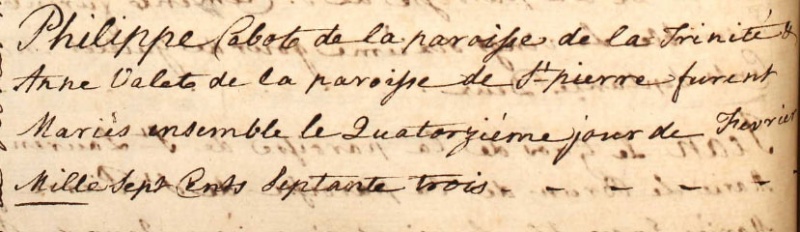 Philippe Cabot de la paroisse de la Trinité &
Anne Valet de la paroisse de St. pierre furent
Mariès ensemble le Quatorziéme jour de Fevrier
Mille Sept Cents Septante trois - - - - -